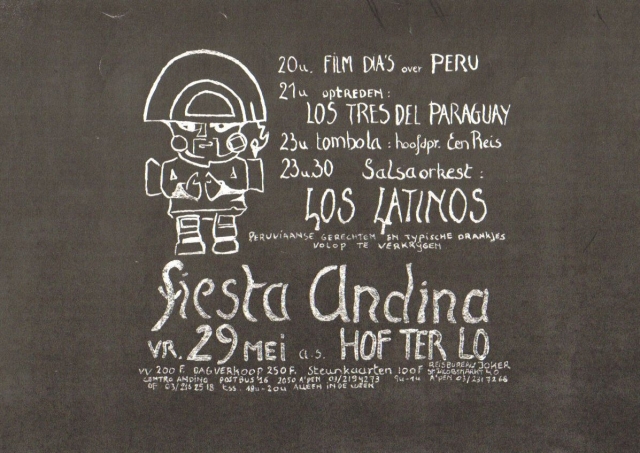 20u. FILM DIA'S over PERU
21u optreden:
LOS TRES DEL PARAGUAY
23u tombola: hoofdpr. Een Reis
23u30 Salsaorkest:
LOS LATINOS
PERUVIAANSE GERECHTEN EN TYPISCHE DRANKJES
VOLOP TE VERKRYGEN
fiesta Andina
VR. 29 MEI a.s. HOF TER LO
VV 200 F. DAGVERKOOP 250 F. Steunkaarten 100 F REISBUREAU JOKER
CENTRO ANDINO POSTBUS 26 2050 A'PEN 03/2194273 A'PEN 03/
OF 03/ 18u-20u ALLEEN IN DE WEEK